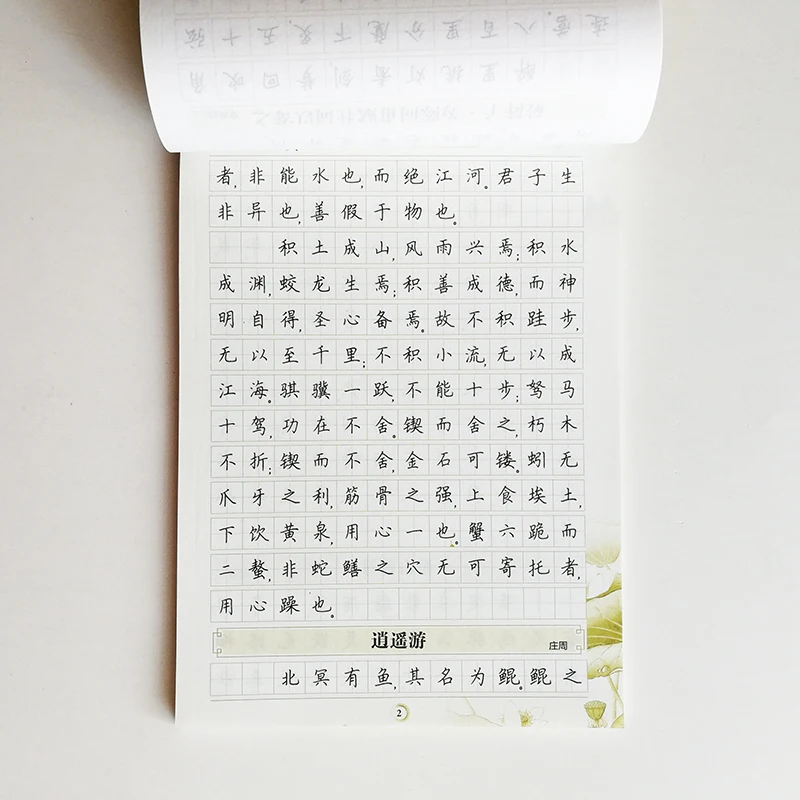 者,非能水也,而绝江河。君子生
非异也,善假于物也。
积土成山,风雨兴焉;积水
成渊,蛟龙生焉;积善成德,而神
明自得,圣心备焉。故不积跬步,
无以至千里;不积小流,无以成
江海。骐骥一跃,不能十步;驽马
十驾,功在不舍。锲而舍之,朽木
不折;锲而不舍,金石可镂。蚓无
爪牙之利,筋骨之强,上食埃土,
下饮黄泉,用心一也。蟹六跪而
二螯,非蛇鳝之穴无可寄托者,
用心躁也。
逍遥游
庄周
北冥有鱼,其名为鲲。鲲之
2